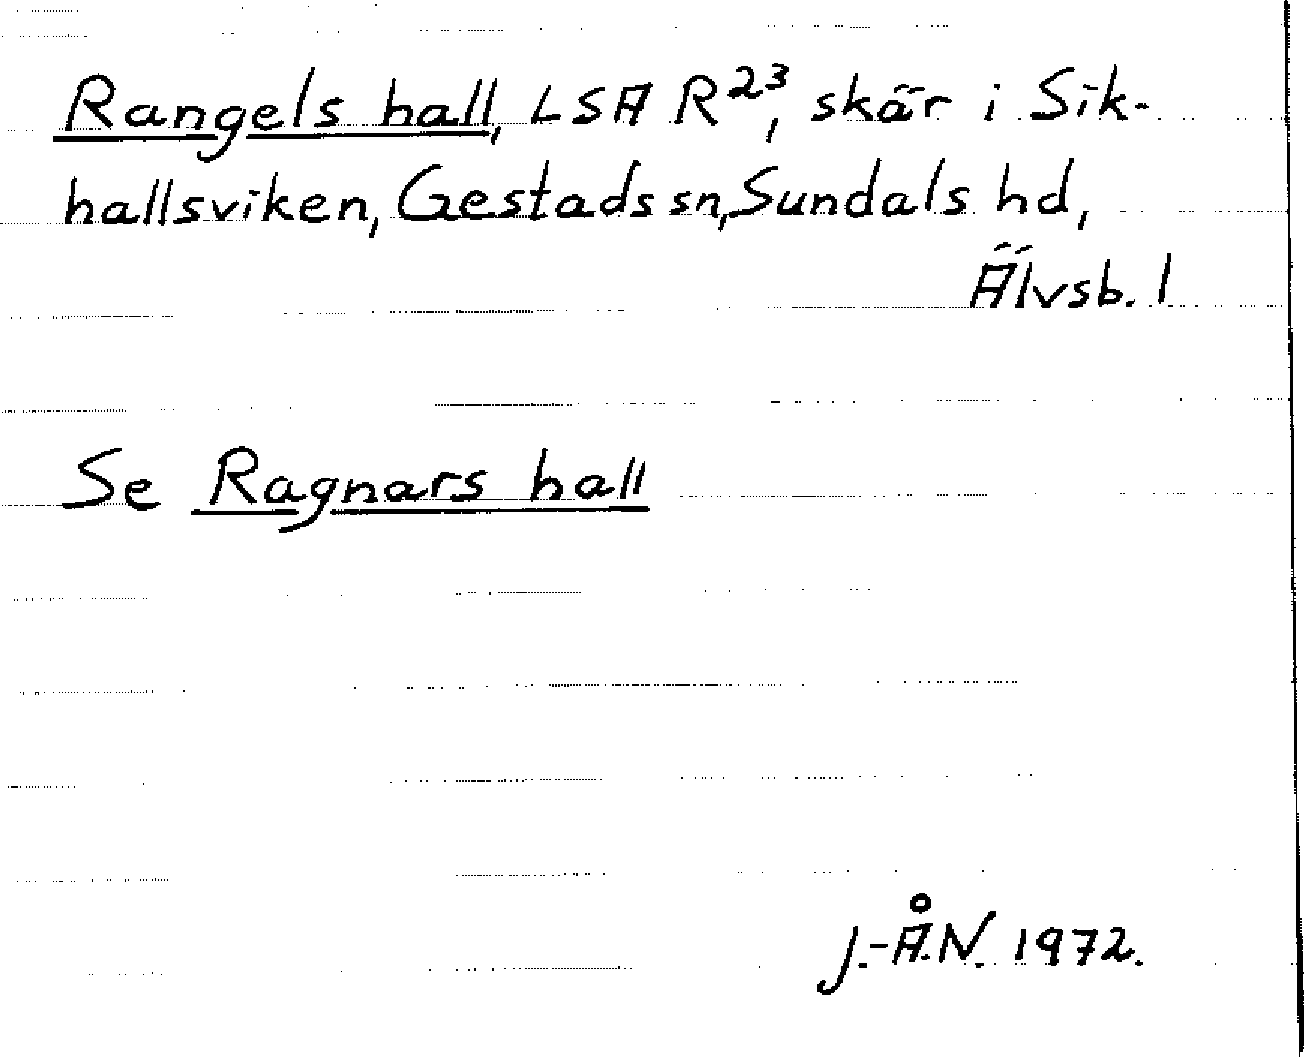 Rangels hall, LSA R²³, skär i Sik-
hallsviken, Gestads sn, Sundals hd,
Älvsb. l
Se Ragnars hall
J.-Å.N. 1972.